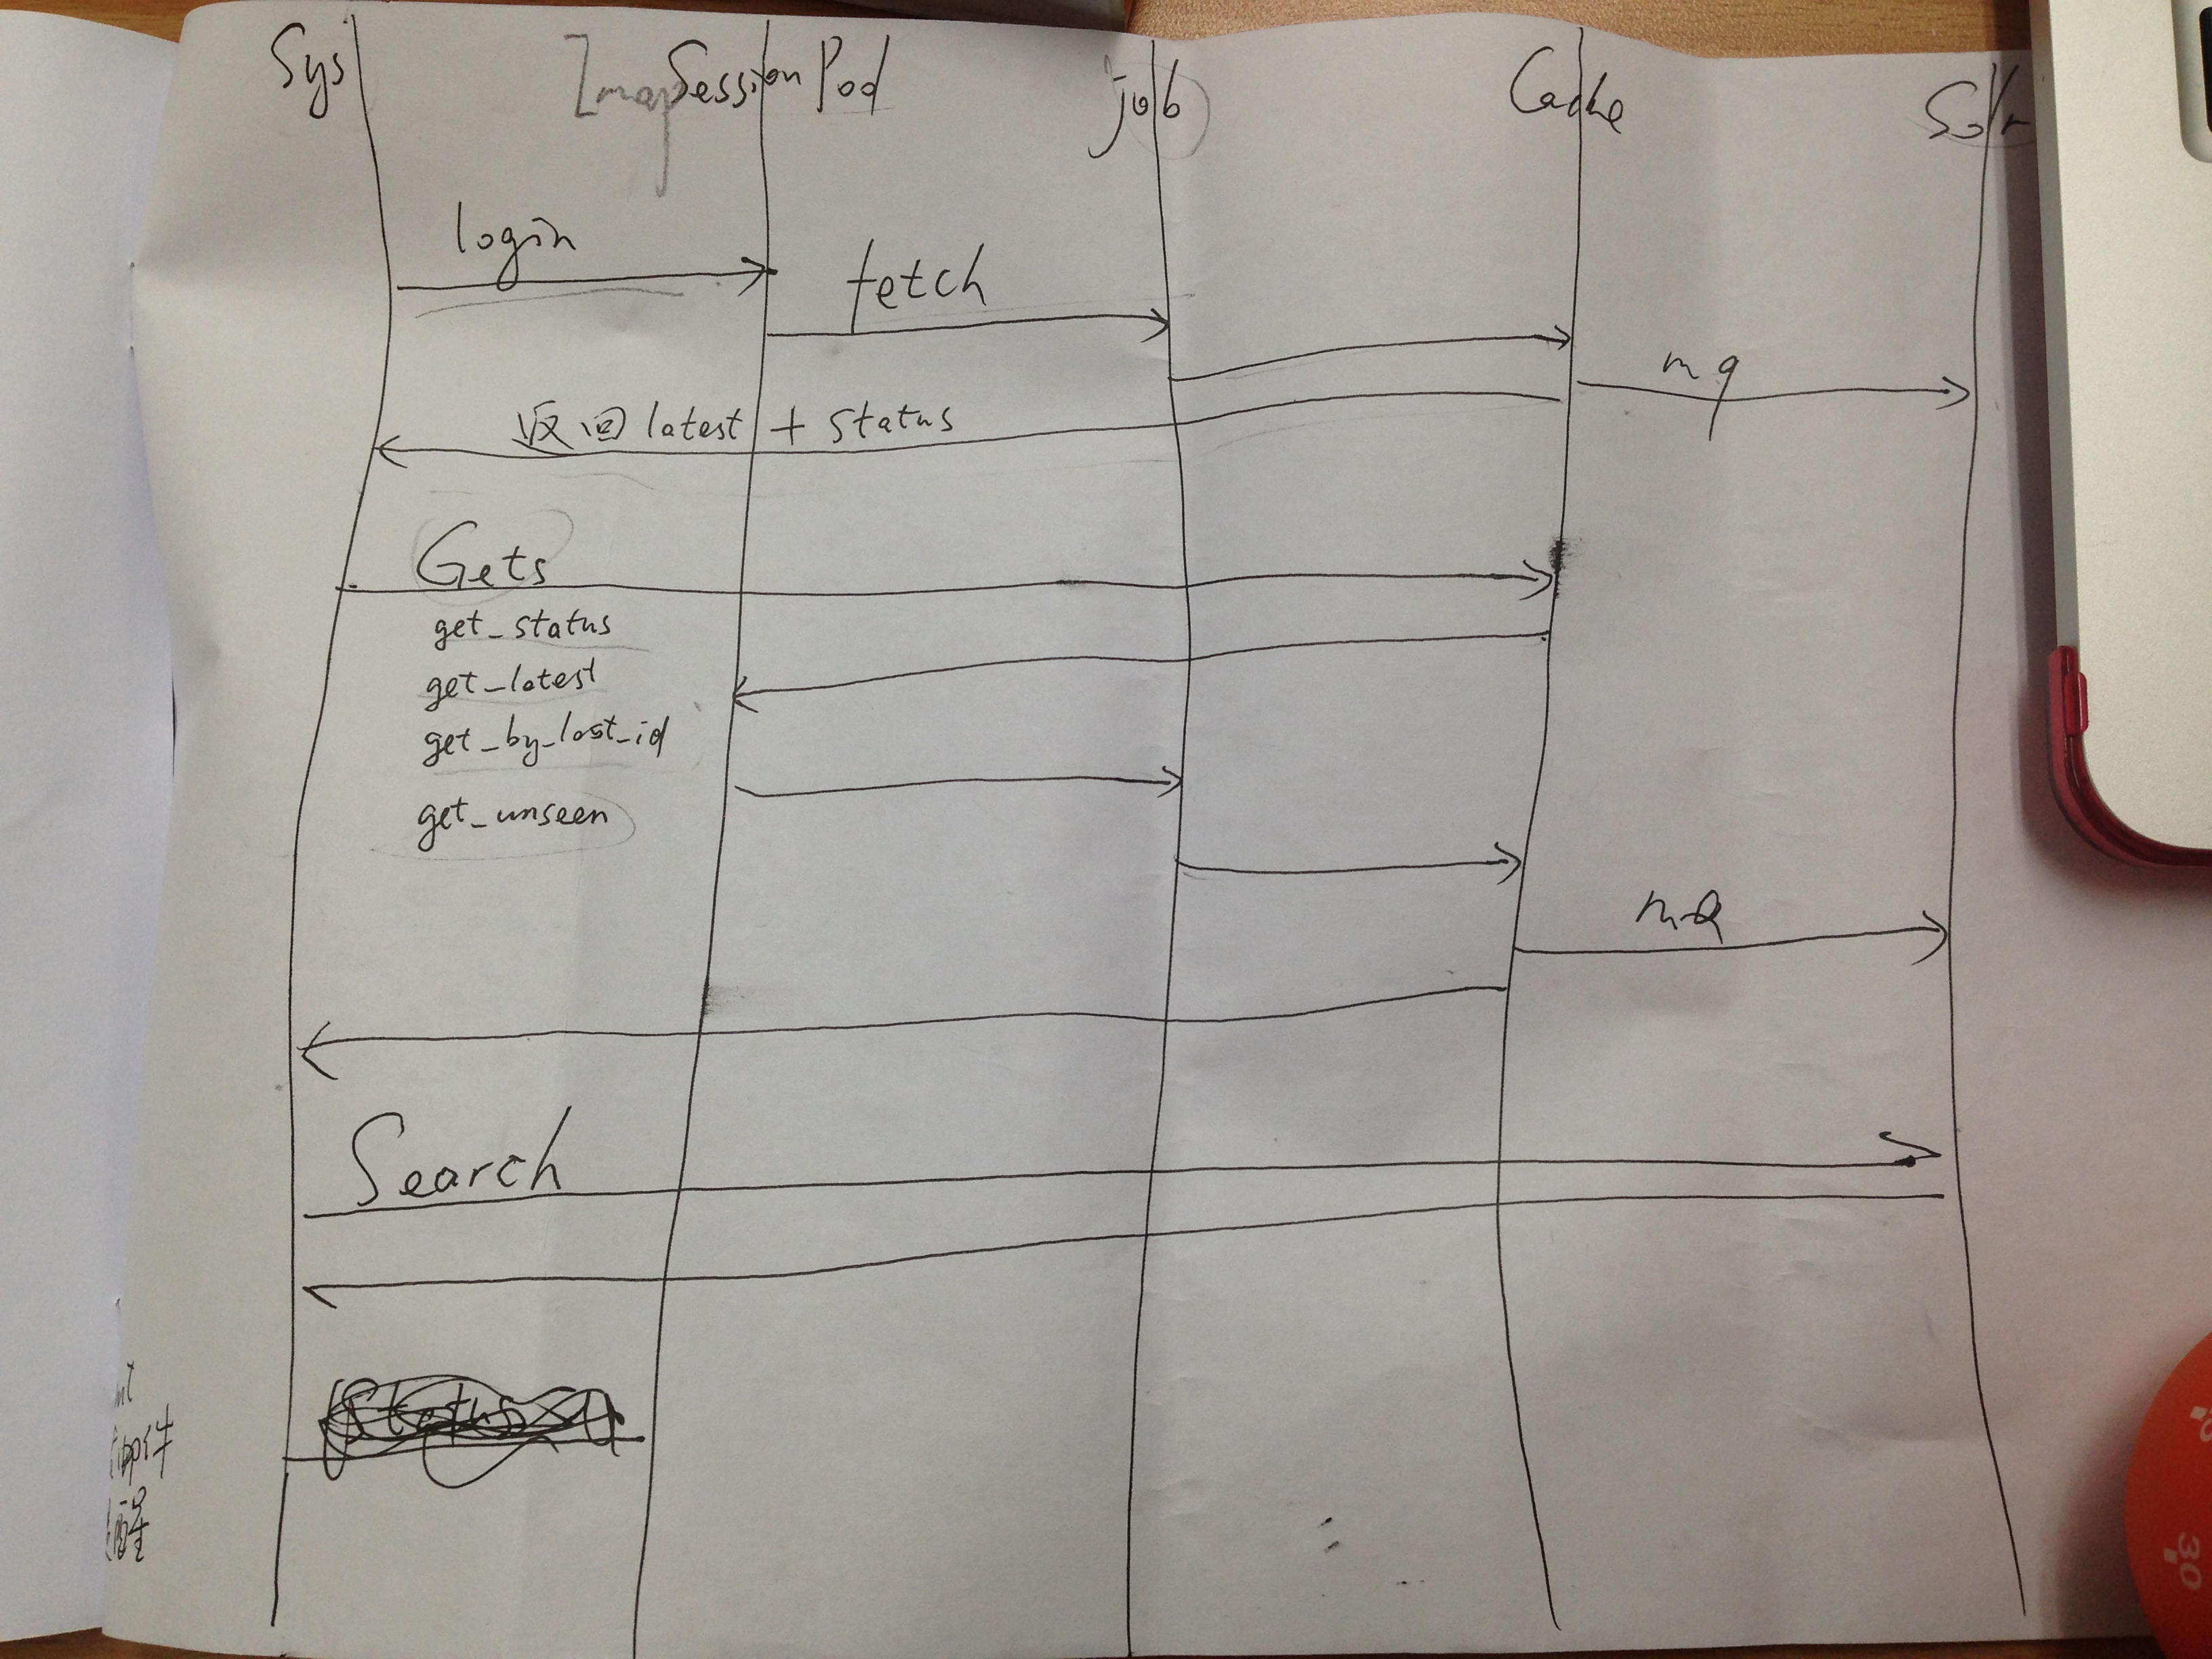 Sys ImapSessionPod job Cache Solr
login
fetch
mq
返回 latest + status
Gets
get_status
get_latest
get_by_last_id
get_unseen
mq
Search
status
邮件
醒
30